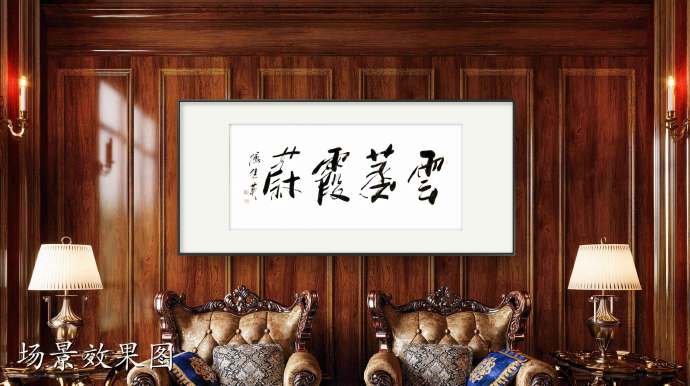 雲蒸霞蔚
场景效果图